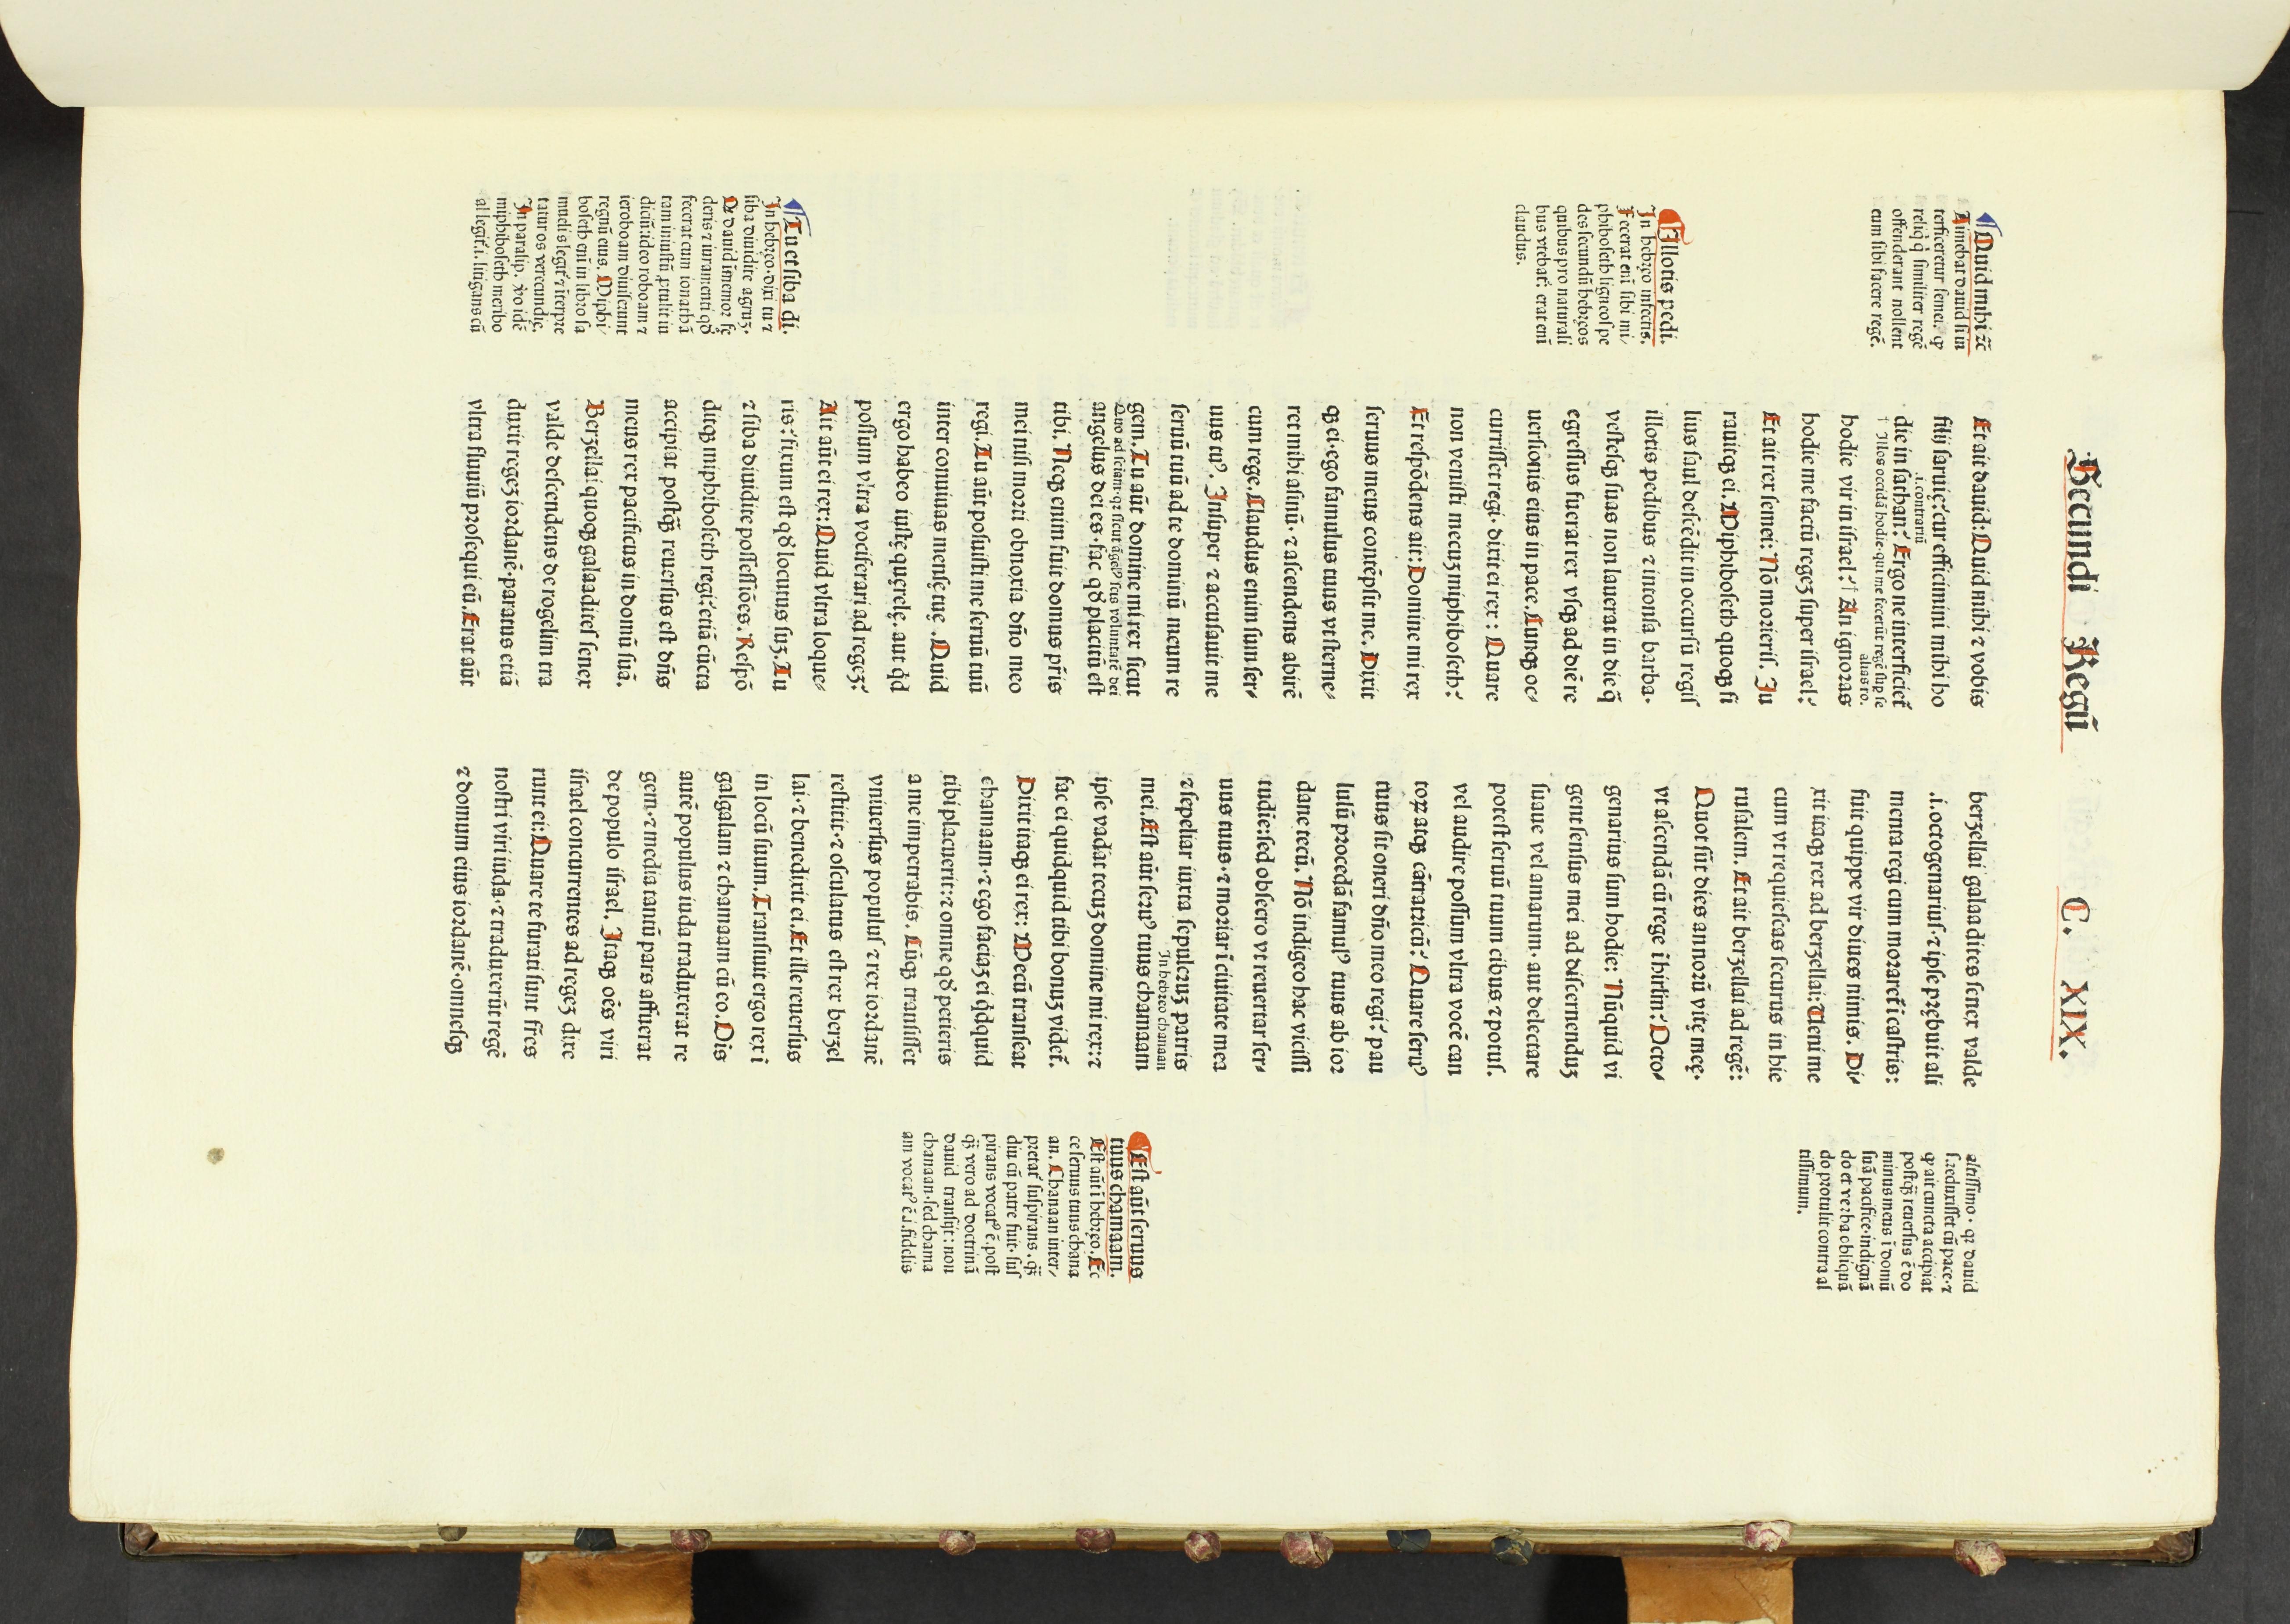 Secundi Regū C. XIX.
¶Quid mihi ⁊c̄
Timebat dauid si in
terficeretur semei. ꝙ
reliq̇ similiter regē
offenderant nollent
eum sibi facere regē.
¶Illotis pedi.
In hebręo infectis.
Fecerat enī sibi mi/
phiboseth ligneos pe
des secundū hebręos
quibus pro naturali
bus vtebat᷑. erat enī
claudus.
¶Tu et siba di.
In hebręo. dixi tu ⁊
siba diuidite agruꝫ.
Qr̄ dauid īmemor fę
deris ⁊ iuramenti qd̄
fecerat cum ionathā
tam iniustū ꝓtulit iu
diciū: ideo roboam ⁊
ieroboam diuiserunt
regnū eius. Miphi/
boseth enī in libro sa
muelis legit᷑ ⁊ īterpre
tatur os verecundię.
In paralip. vo idē
miphiboseth meribo
al legit᷑. i. litigans cū
Et ait dauid: Quid mihi ⁊ vobis
filij saruię: cur efficimini mihi ho
.i. contrariū
die in sathan: Ergo ne interficiet᷑
† Illos occidā hodie. qui me fecerūt regē sup se
alias ro.
hodie vir in israel: † An ignoras
hodie me factū regeꝫ super israel:
Et ait rex semei: Nō morieris. Iu
rauitqꝫ ei. Miphiboseth quoqꝫ fi
lius saul descēdit in occursū regis
illotis pedibus ⁊ intonsa barba.
vestesqꝫ suas non lauerat in die q̄
egressus fuerat rex vsqꝫ ad diē re
uersionis eius in pace. Cunqꝫ oc/
currisset regi. dixit ei rex: Quare
non venisti mecuꝫ miphiboseth:
Et respōdens ait: Domine mi rex
seruus meus contēpsit me. Dixit
qꝫ ei. ego famulus tuus vt sterne/
ret mihi asinū. ⁊ ascendens abirē
cum rege. Claudus enim sum ser/
uus tuꝰ. Insuper ⁊ accusauit me
seruū tuū ad te dominū meum re
gem. Tu aūt domine mi rex sicut
Quo ad sciam. qr sicut āgelꝰ scis voluntatē dei
angelus dei es. fac qd̄ placitū est
tibi. Neqꝫ enim fuit domus pr̄is
mei nisi morti obnoxia dn̄o meo
regi. Tu aūt posuisti me seruū tuū
inter conuiuas mensę tuę. Quid
ergo habeo iustę querelę. aut q̇d
possum vltra vociferari ad regeꝫ:
Ait aūt ei rex: Quid vltra loque/
ris: fixum est qd̄ locutus suꝫ. Tu
⁊ siba diuidite possessiōes. Respō
ditqꝫ miphiboseth regi: etiā cūcta
accipiat postq̄ reuersus est dn̄s
meus rex pacificus in domū suā.
Berꝫellai quoqꝫ galaadites senex
valde descendens de rogelim tra
duxit regeꝫ iordanē. paratus etiā
vltra fluuiū prosequi eū. Erat aūt
berꝫellai galaadites senex valde
.i. octogenarius. ⁊ ipse prębuit ali
menta regi cum moraret᷑ ī castris:
fuit quippe vir diues nimis. Di/
xit itaqꝫ rex ad berꝫellai: Veni me
cum vt requiescas securus in hie
rusalem. Et ait berꝫellai ad regē:
Quot sūt dies annorū vitę meę.
vt ascendā cū rege ī hirl'm: Octo/
genarius sum hodie: Nūquid vi
gent sensus mei ad discernenduꝫ
suaue vel amarum. aut delectare
potest seruū tuum cibus ⁊ potus.
vel audire possum vltra vocē can
toꝝ atqꝫ cātratricū: Quare seruꝰ
tuus sit oneri dn̄o meo regi: pau
lulū procedā famulꝰ tuus ab ior
dane tecū. Nō indigeo hac vicissi
tudie: sed obsecro vt reuertar ser/
uus tuus. ⁊ moriar ī ciuitate mea
⁊ sepeliar iuxta sepulcruꝫ patris
In hebreo chanaan
mei. Est aūt seruꝰ tuus chamaam
ipse vadat tecuꝫ domine mi rex: ⁊
fac ei quidquid tibi bonuꝫ videt᷑.
Dixit itaqꝫ ei rex: Mecū transeat
chamaam. ⁊ ego faciaꝫ ei q̇dquid
tibi placuerit: ⁊ omne qd̄ petieris
a me impetrabis. Cūqꝫ transisset
vniuersus populus ⁊ rex iordanē
restitit. ⁊ osculatus est rex berꝫel
lai. ⁊ benedixit ei. Et ille reuersus
in locū suum. Transiuit ergo rex ī
galgalam ⁊ chamaam cū eo. Ois
autē populus iuda traduxerat re
gem. ⁊ media tantū pars affuerat
de populo israel. Itaqꝫ oēs viri
israel concurrentes ad regeꝫ dixe
runt ei: Quare te furati sunt fr̄es
nostri viri iuda. ⁊ traduxerūt regē
⁊ domum eius iordanē. omnesqꝫ
altissimo. qr dauid
s. reduxisset cū pace. ⁊
ꝙ ait cuncta accipiat
postq̄ reuersus ē do
minus meus ī domū
suā pacifice. indignā
do et verba obliquā
do protulit contra al
tissimum.
¶Est aūt seruus
tuus chamaam.
Est aūt ī hebręo. Ec
ce seruus tuus chana
an. Chanaan inter/
pretat᷑ suspirans. q̄
diu cū patre fuit. sus
pirans vocatꝰ ē. post
q̄ vero ad doctrinā
dauid transijt: non
chanaan. sed chama
am vocatꝰ ē .i. fidelis